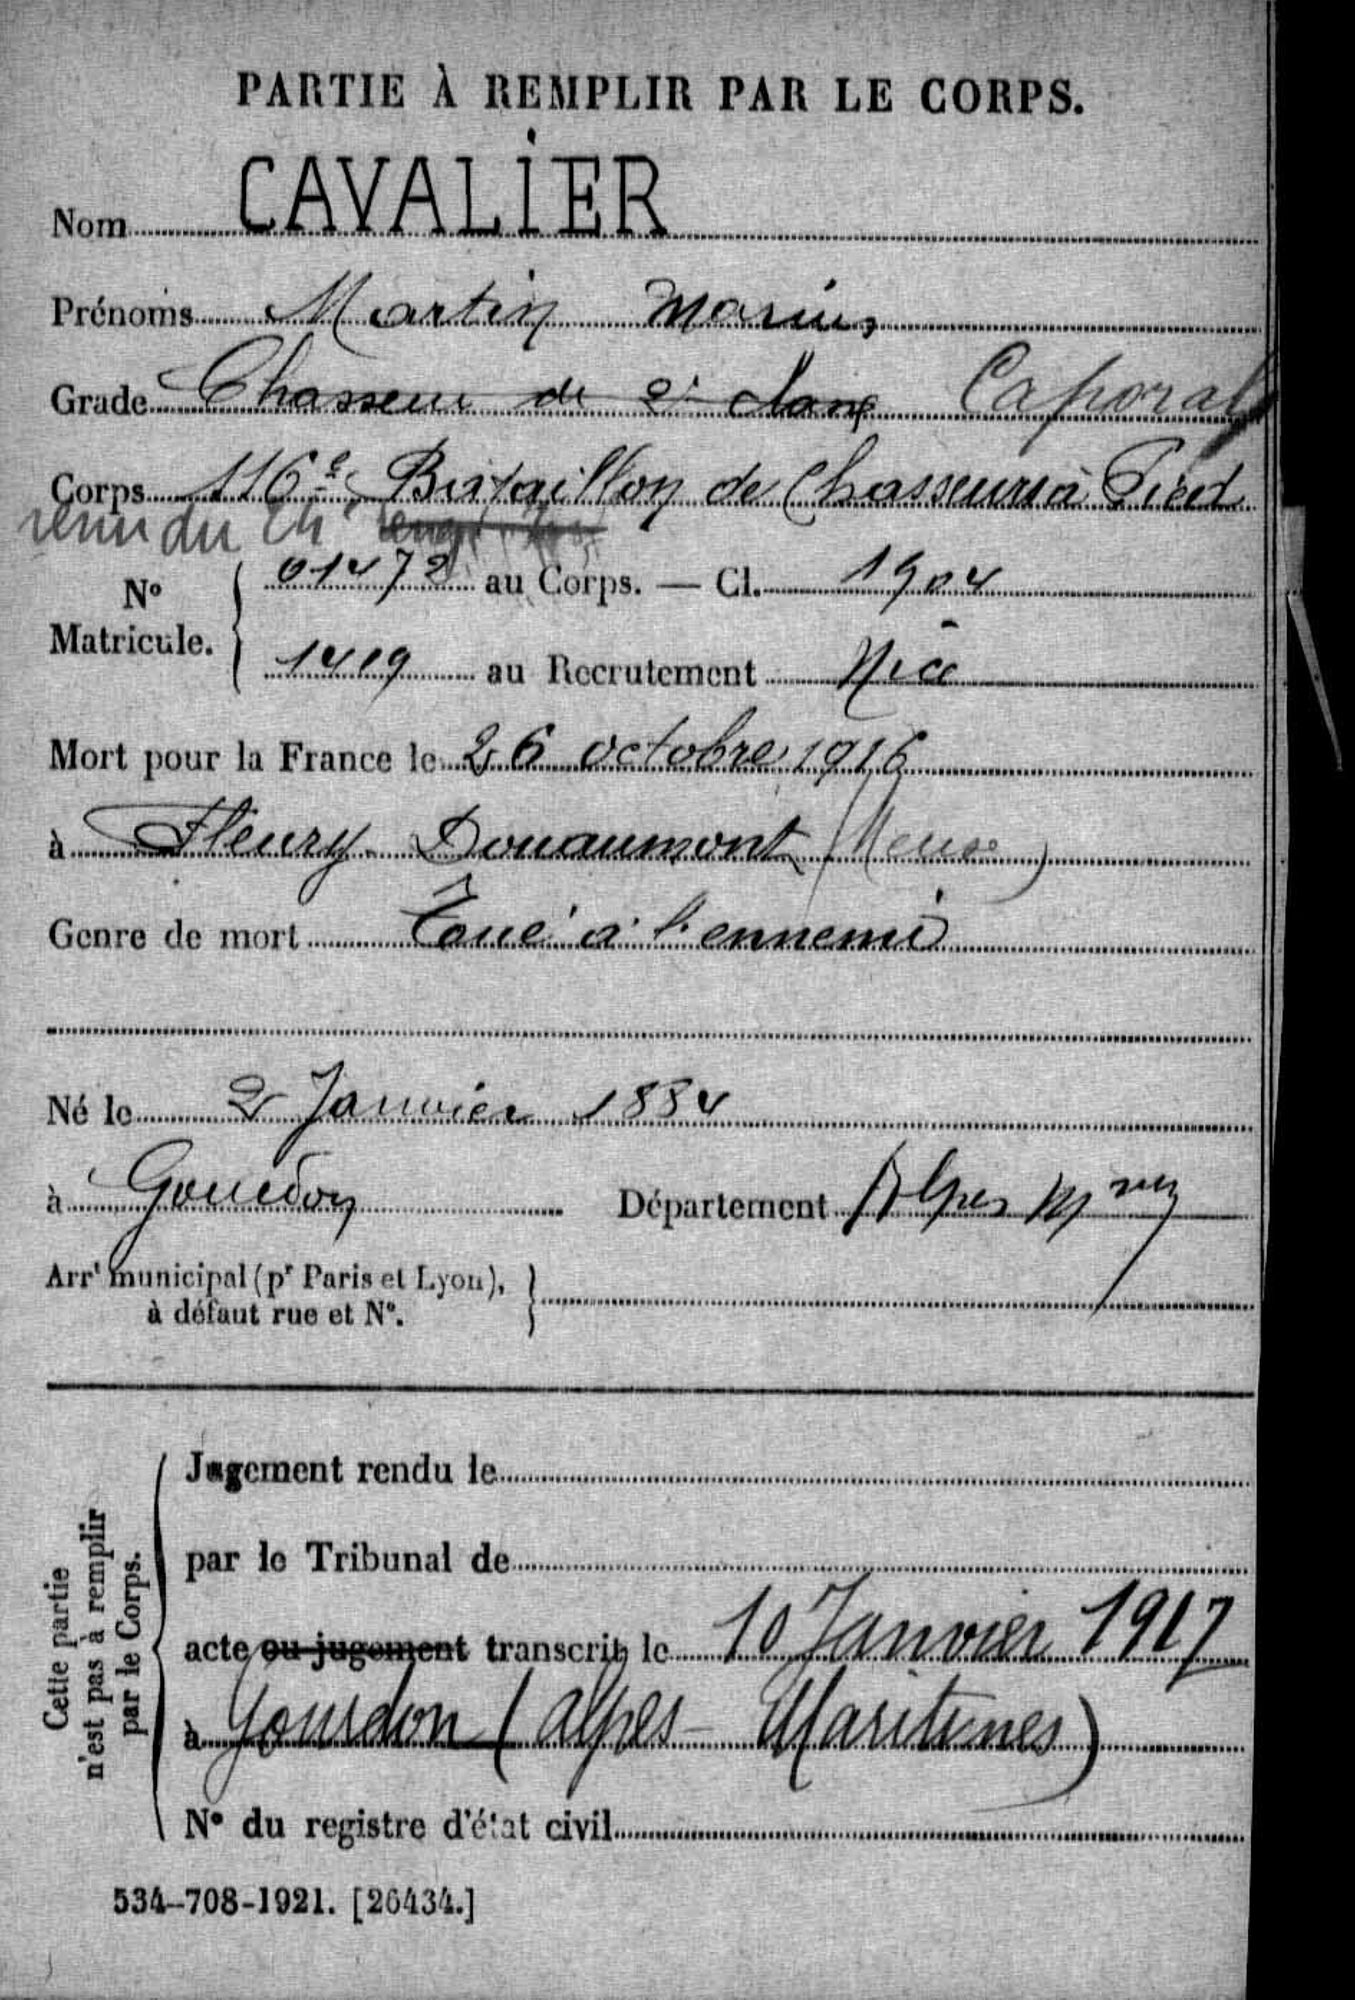 PARTIE À REMPLIR PAR LE CORPS.
Nom CAVALIER
Prénoms Martin Marius
Grade Chasseur de 2e classe Caporal
Corps 116e Bataillon de Chasseurs à Pied
venu du
No Matricule. 01472 au Corps. — Cl. 1904
1419 au Recrutement Nice
Mort pour la France le 26 octobre 1916
à Fleury-Douaumont (Meuse)
Genre de mort Tué à l'ennemi
Né le 2 Janvier 1884
à Gourdon Département Alpes Mmes
Arrt municipal (pr Paris et Lyon),
à défaut rue et No.
Cette partie
n'est pas à remplir
par le Corps.
Jugement rendu le
par le Tribunal de
acte ou jugement transcrit le 10 Janvier 1917
à Gourdon (Alpes-Maritimes)
No du registre d'état civil
534-708-1921. [26434.]